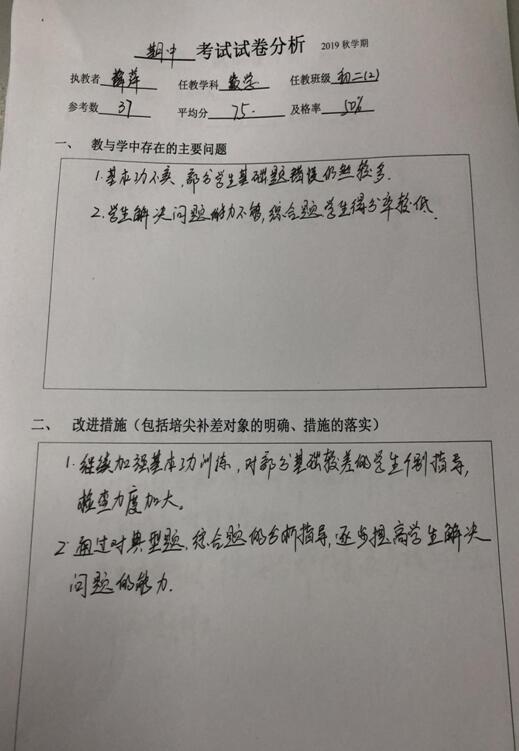 期中 考试试卷分析 2019 秋学期
执教者 薛萍 任教学科 数学 任教班级 初二(2)
参考数 37 平均分 75. 及格率 50%
一、 教与学中存在的主要问题
1.基本功不实,部分学生基础题错误仍然较多.
2.学生解决问题能力不够,综合题学生得分率较低.
二、 改进措施(包括培尖补差对象的明确、措施的落实)
1.继续加强基本功训练,对部分基础较差的学生个别指导,
检查力度加大。
2.通过对典型题,综合题的分析指导,逐步提高学生解决
问题的能力.